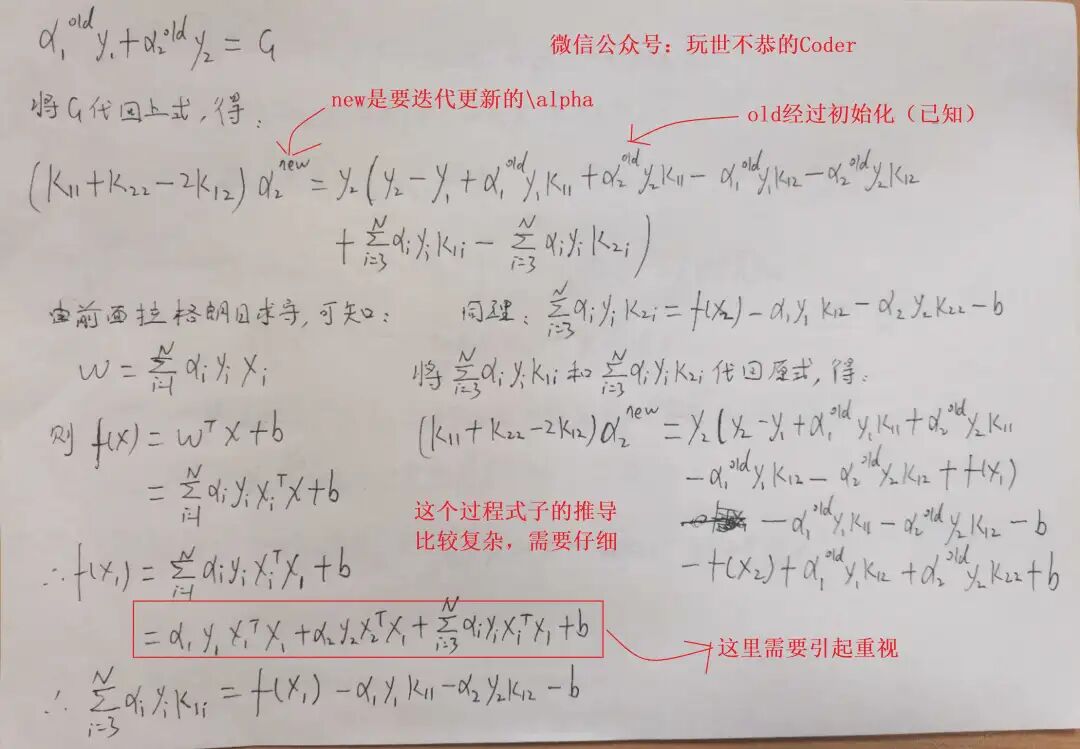 α₁^old y₁ + α₂^old y₂ = G
微信公众号：玩世不恭的Coder
将G代回上式，得：
new是要迭代更新的\alpha
old经过初始化（已知）
(K₁₁+K₂₂-2K₁₂) α₂^new = y₂(y₂-y₁+α₁^old y₁K₁₁+α₂^old y₂K₁₁-α₁^old y₁K₁₂-α₂^old y₂K₁₂
+ ∑_{i=3}^N αᵢyᵢK₁ᵢ - ∑_{i=3}^N αᵢyᵢK₂ᵢ)
由前面拉格朗日求导，可知：
w = ∑_{i=1}^N αᵢyᵢxᵢ
则 f(x) = wᵀx+b
= ∑_{i=1}^N αᵢyᵢxᵢᵀx+b
∴ f(x₁) = ∑_{i=1}^N αᵢyᵢxᵢᵀx₁+b
= α₁y₁x₁ᵀx₁+α₂y₂x₂ᵀx₁+∑_{i=3}^N αᵢyᵢxᵢᵀx₁+b
这里需要引起重视
∴ ∑_{i=3}^N αᵢyᵢK₁ᵢ = f(x₁)-α₁y₁K₁₁-α₂y₂K₁₂-b
同理：∑_{i=3}^N αᵢyᵢK₂ᵢ = f(x₂)-α₁y₁K₁₂-α₂y₂K₂₂-b
将∑_{i=3}^N αᵢyᵢK₁ᵢ和∑_{i=3}^N αᵢyᵢK₂ᵢ代回原式，得：
(K₁₁+K₂₂-2K₁₂)α₂^new = y₂(y₂-y₁+α₁^old y₁K₁₁+α₂^old y₂K₁₁
-α₁^old y₁K₁₂-α₂^old y₂K₁₂+f(x₁)
-α₁^old y₁K₁₁-α₂^old y₂K₁₂-b
-f(x₂)+α₁^old y₁K₁₂+α₂^old y₂K₂₂+b
这个过程式子的推导
比较复杂，需要仔细